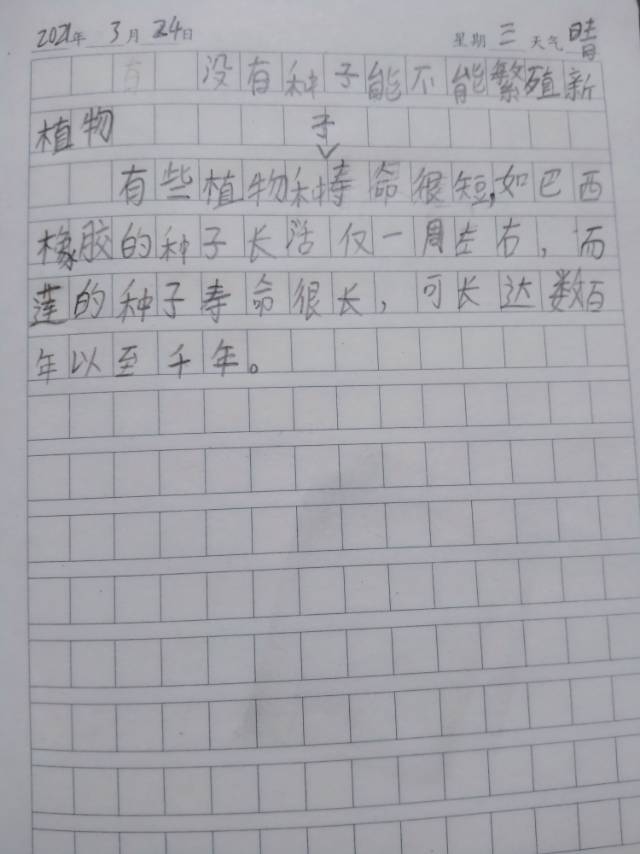 2021年 3月 24日 星期 三 天气 晴
没有种子能不能繁殖新
植物
有些植物种子寿命很短,如巴西
橡胶的种子长活仅一周左右,而
莲的种子寿命很长,可长达数百
年以至千年。